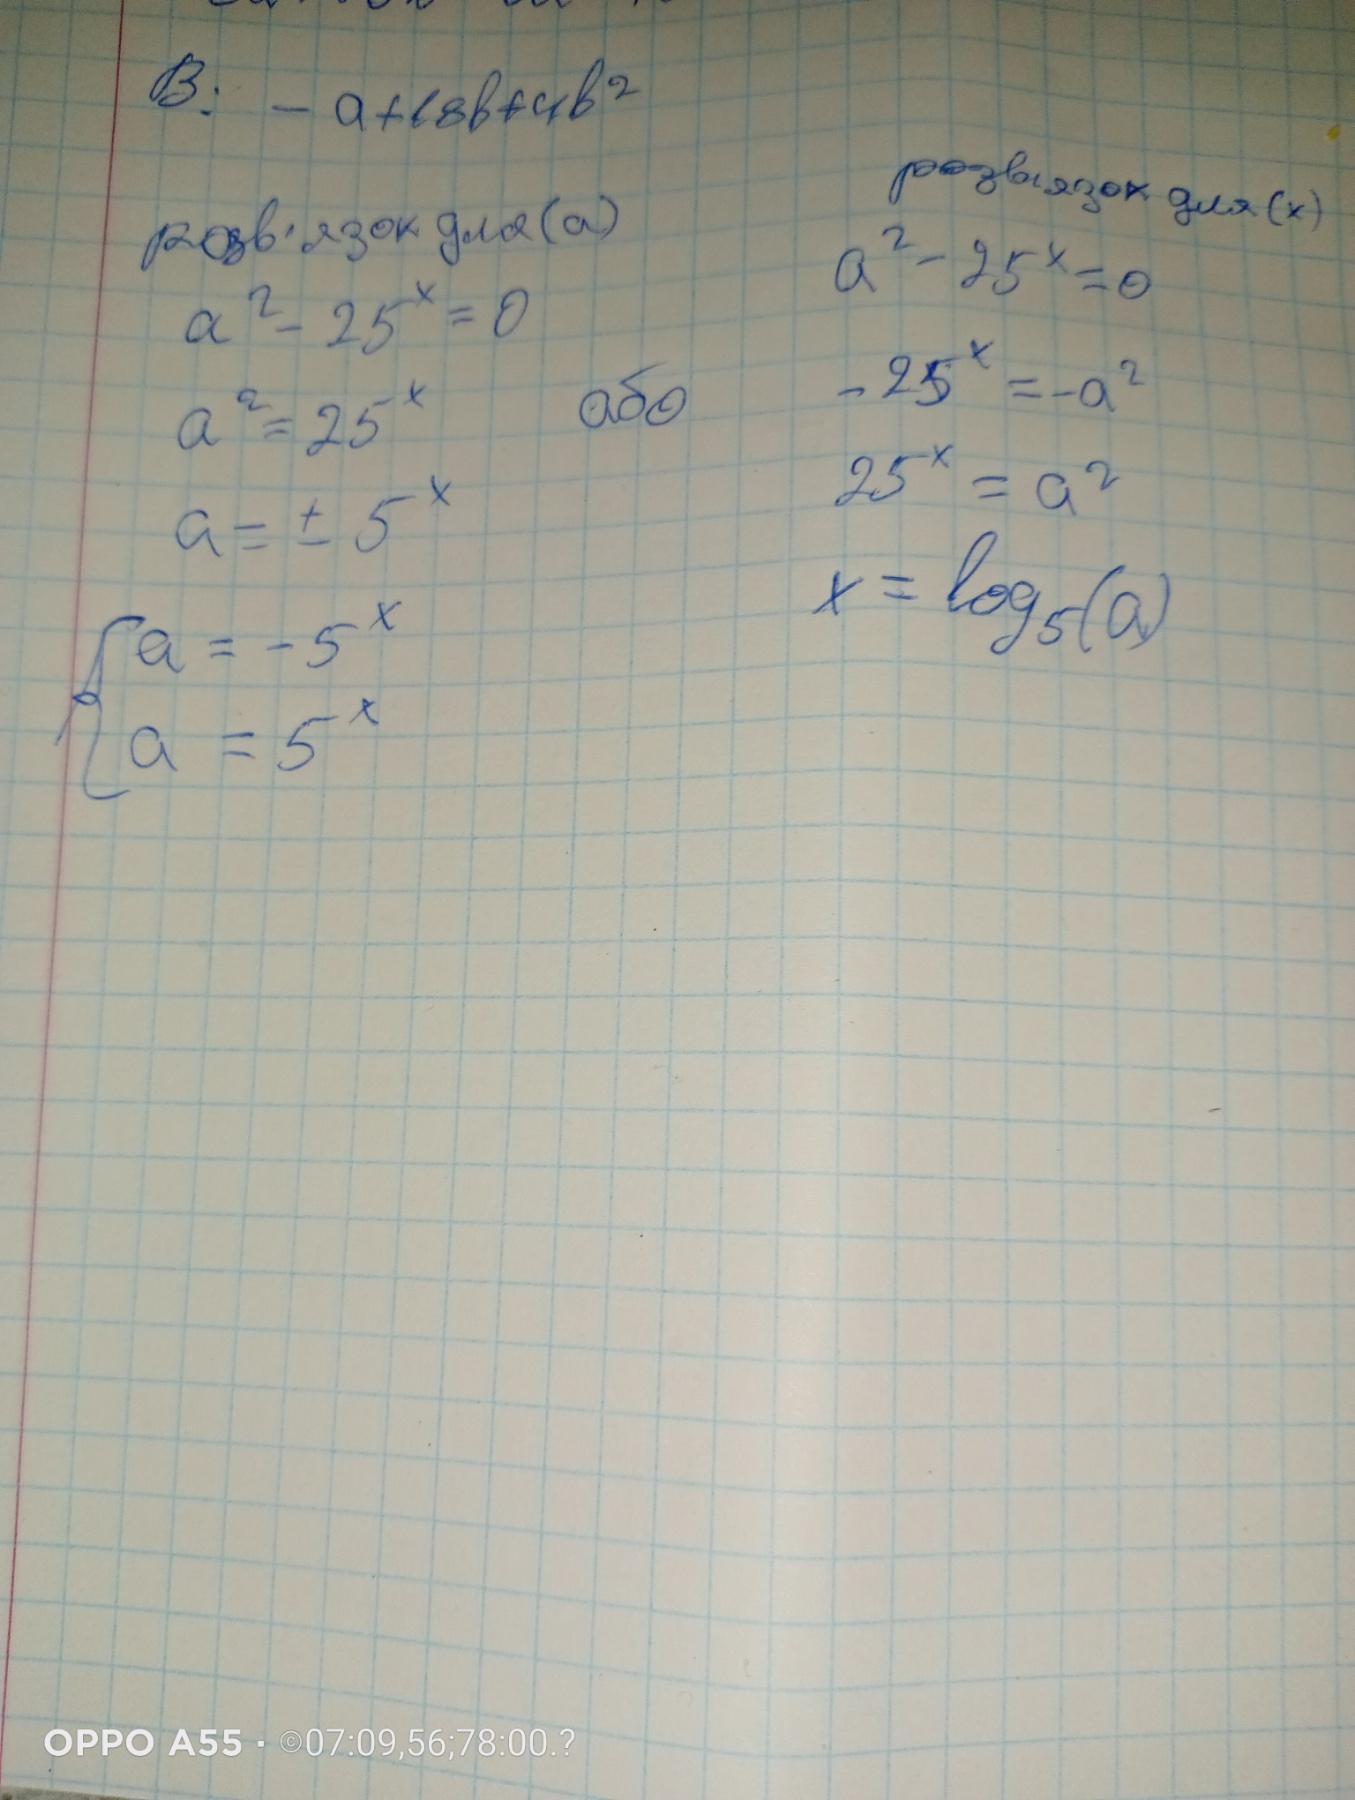 В: - a+68b+4b²
розв'язок для(а)
a² - 25ˣ = 0
a² = 25ˣ
a = ± 5ˣ
a = -5ˣ
a = 5ˣ
або
розв'язок для(х)
a² - 25ˣ = 0
- 25ˣ = -a²
25ˣ = a²
x = log₅(a)
OPPO A55 · ©07:09,56;78:00.?